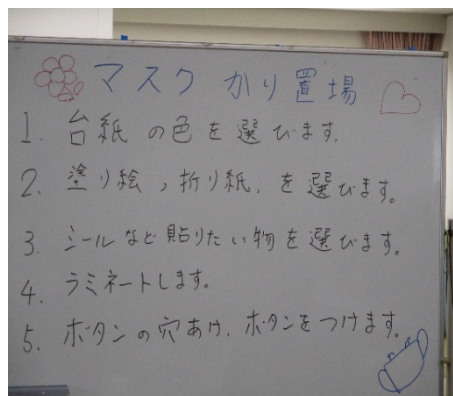 マスクかり置場
1. 台紙の色を選びます.
2. 塗り絵,折り紙.を選びます。
3. シールなど貼りたい物を選びます。
4. ラミネートします。
5. ボタンの穴あけ.ボタンをつけます。